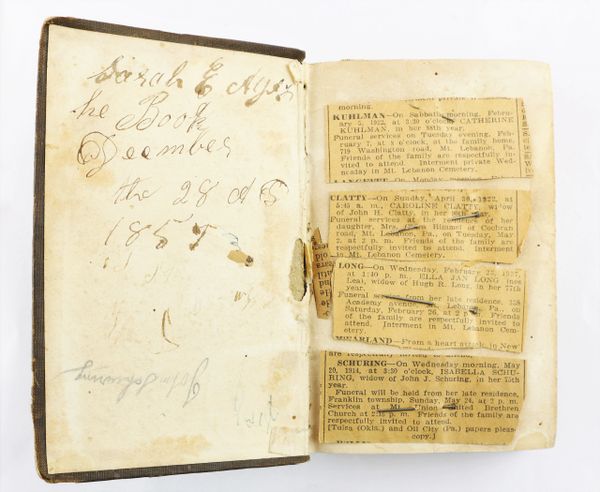 Sarah E Ayer
the Book
December
the 28 AD
185
John Schuring
morning.
KUHLMAN—On Sabbath morning, Febru-
ary 5, 1922, at 3:30 o'clock, CATHERINE
KUHLMAN, in her 88th year.
Funeral services on Tuesday evening, Feb-
ruary 7, at 8 o'clock, at the family home,
719 Washington road, Mt. Lebanon, Pa.
Friends of the family are respectfully in-
vited to attend. Interment private Wed-
nesday in Mt. Lebanon Cemetery.
CLATTY—On Sunday, April 30, 1922, at
5:45 a. m., CAROLINE CLATTY, widow
of John H. Clatty, in her year.
Funeral services at the residence of her
daughter, Mrs. Himmel of Cochran
road, Mt. Lebanon, Pa., on Tuesday, May
2, at 2 p. m. Friends of the family are
respectfully invited to attend. Interment
in Mt. Lebanon Cemetery.
LONG—On Wednesday, February 23, 1927,
at 1:40 p. m., ELLA JAN LONG (nee
Lea), widow of Hugh R. Long, in her 77th
year.
Funeral from her late residence,
Academy avenue, Mt. Lebanon, Pa., on
Saturday, February 26, at 2 p. m. Friends
of the family are respectfully invited to
attend. Interment in Mt. Lebanon Cem-
etery.
McFARLAND—From a heart attack, in New
are respectfully invited to attend.
SCHURING—On Wednesday morning, May
20, 1914, at 3:30 o'clock, ISABELLA SCHU-
RING, widow of John J. Schuring, in her 75th
year.
Funeral will be held from her late residence,
Franklin township, Sunday, May 24, at 2 p. m.
Services at Mt. Union United Brethren
Church at 2:30 p. m. Friends of the family are
respectfully invited to attend.
[Tulsa (Okla.) and Oil City (Pa.) papers please
copy.]